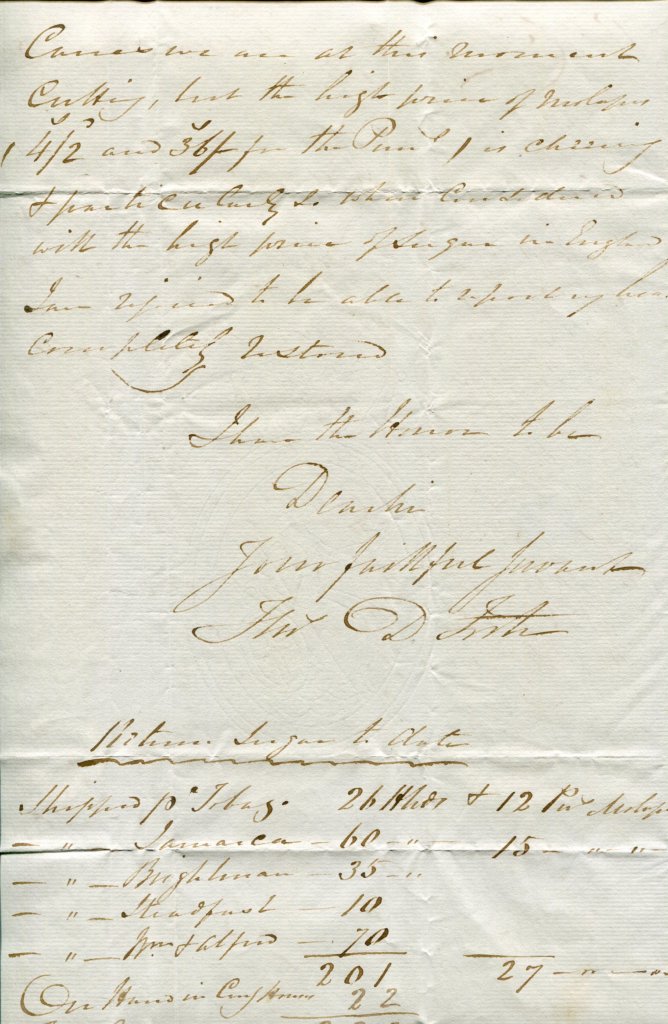 Canes we are at this moment
Cutting, but the high price of molasses
4/2 and 36/ for the Punn , is cheering
& particularly so when Considered
with the high price of Sugar in England
I am rejoiced to be able to report my hea
completely restored
I have the Honor to be
Dear Sir
Your faithful Servant
Thos D.
Return Sugar to date
Shipped pr Tobago 26 Hhds & 12 Puns Molass
— " — Jamaica — 60 — " — 15 — " "
— " — Brightman — 35 — "
— " — Steadfast — 10
— " — Wm & Alfred — 70
201 27 — " — "
On Hand in Curg House 22